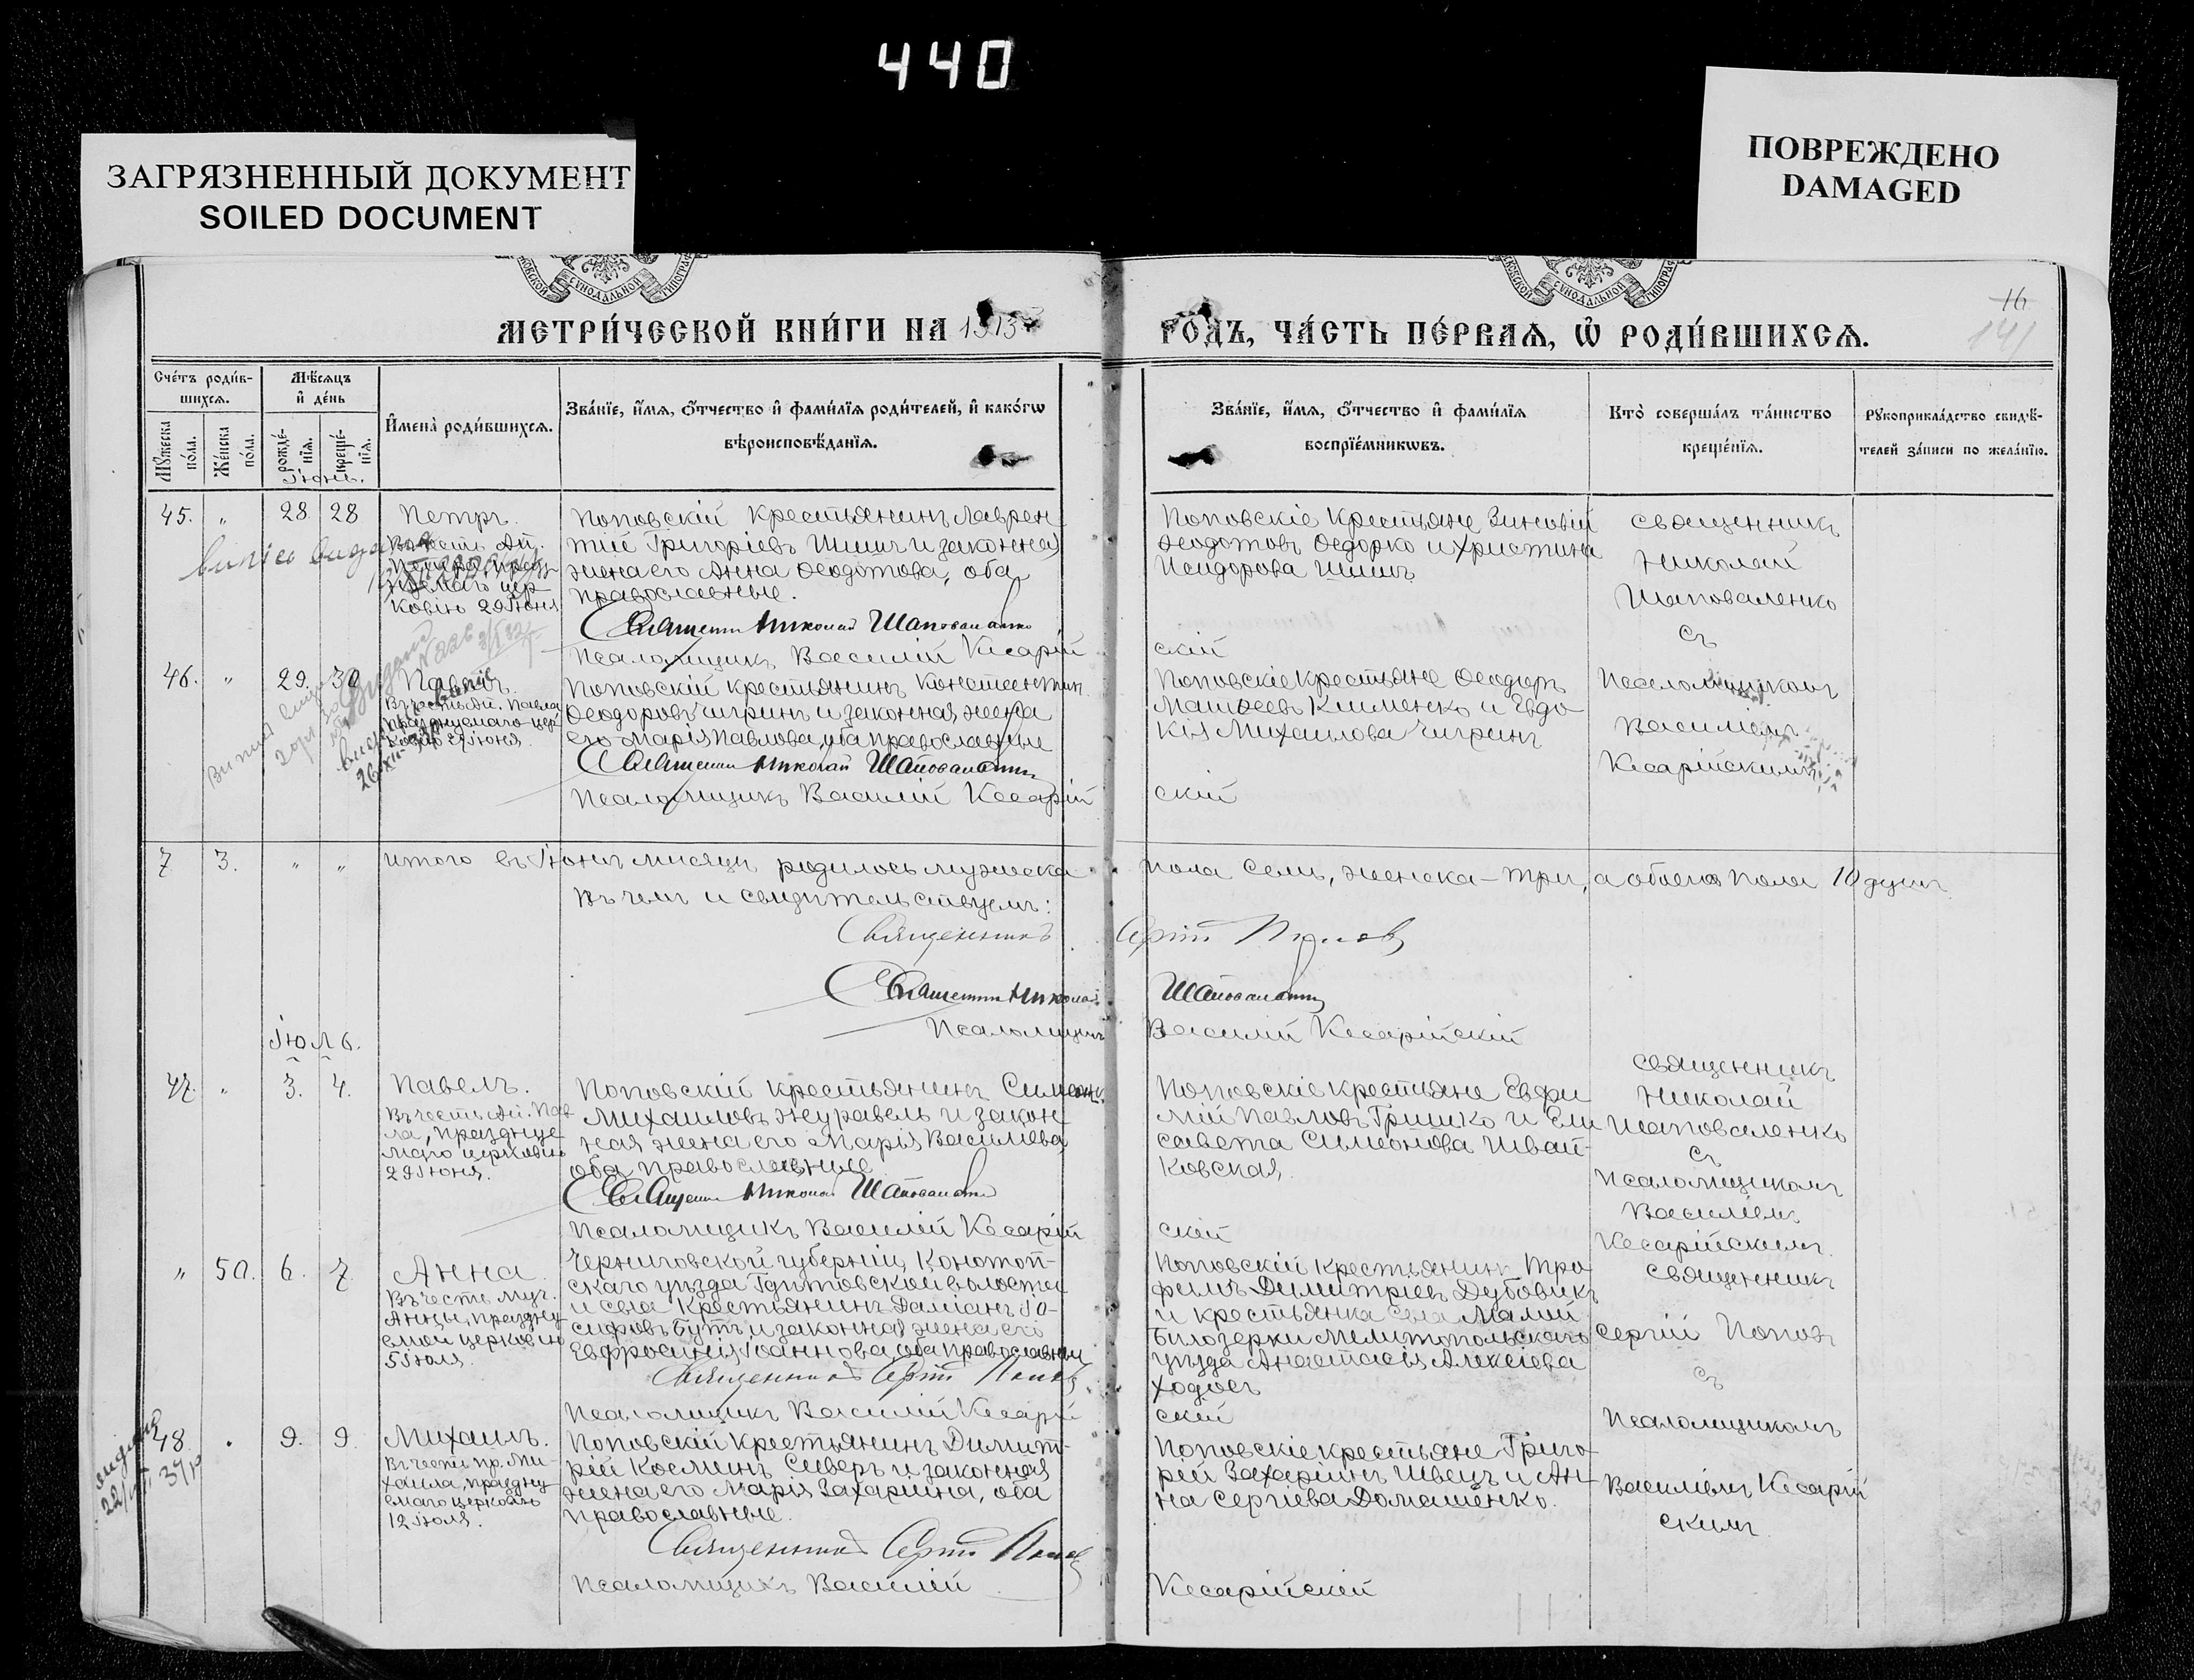 440
ЗАГРЯЗНЕННЫЙ ДОКУМЕНТ
SOILED DOCUMENT
ПОВРЕЖДЕНО
DAMAGED
16
141
МЕТРИ́ЧЕСКОЙ КНИ́ГИ НА 1913
ГОДЪ, ЧА́СТЬ ПЕ́РВАЯ, Ѽ РОДИ́ВШИХСЯ.
Сче́тъ роди́в-
шихся.
Мѣ́сяцъ
и҆ де́нь
Мꙋжеска
по́ла.
Же́нска
по́ла.
рожде́-
нїя.
креще́-
нїя.
Іюнь.
И҆мена̀ роди́вшихся.
Зва́нїе, и҆́мя, ѻ҆́тчество и҆ фами́лїя роди́телей, и҆ како́гѡ
вѣроисповѣ́данїя.
Зва́нїе, и҆́мя, ѻ҆́тчество и҆ фами́лїя
воспрїе́мникѡвъ.
Кто̀ соверша́лъ та́инство
креще́нїя.
Рꙋкоприкла́дство свидѣ́-
телей за́писи по жела́нїю.
45. " 28 28 Петръ.
Ковію 29 Іюня
Поповскій крестьянинъ Лаврен
тій Григоріевъ Шишъ и законная
жена его Анна Ѳеодотова, оба
православные.
Священни Николай Шаповаленко
Псаломщикъ Василій Кесарій
скій
Поповскіе крестьяне Зиновій
Ѳеодотовъ Ѳедорко и Христина
Исидорова Шишъ
Священникъ
Николай
Шаповаленко
съ
46. " 29. 30 Павелъ.
Въ честь Ап. Павла
празднуемаго цер
ковію 29 Іюня.
Поповскій крестьянинъ Константин
Ѳеодоровъ Чигринъ и законная жена
его Марія Павлова, оба православные
Священни Николай Шаповаленко
Псаломщикъ Василій Кесарій
скій
Поповскіе крестьяне Ѳеодоръ
Матѳеевъ Клименко и Евдо
кія Михаилова Чигринъ
Псаломщикомъ
Василіемъ
Кесарійскимъ
7 3. " " итого въ Іюнѣ мѣсяцѣ родилось мужеска
пола семь, женска – три, а обоего пола 10 душъ
въ чемъ и свидѣтельствуемъ:
Священникъ Сергій Поповъ
Священни Николай Шаповаленко
Псаломщикъ Василій Кесарійскій
Іюль.
47. " 3. 4. Павелъ.
Въ честь Ап. Пав
ла, празднуе
маго церковію
29 Іюня.
Поповскій крестьянинъ Симеонъ
Михаиловъ Журавель и закон
ная жена его Марія Василіева
оба православные
Священни Николай Шаповаленко
Псаломщикъ Василій Кесарій
скій
Поповскіе крестьяне Евфи
мій Павловъ Гришко и Ели
савета Симеонова Швай-
ковская,
Священникъ
Николай
Шаповаленко
съ
Псаломщикомъ
Василіемъ
Кесарійскимъ.
" 50. 6. 7. Анна.
Въ честь муч.
Анны, праздну
емой церковію
5 Іюля.
Черниговской губерніи Конотоп-
скаго уѣзда волости
и села крестьянинъ Даміанъ Іо-
сифовъ Бутъ и законная жена его
Евфросинія Іоаннова, оба православные
Священникъ Сергій Поповъ
Псаломщикъ Василій Кесарій
скій
Поповскій крестьянинъ Тро
фимъ Димитріевъ Дубовикъ
и крестьянка села Малой
Бѣлозерки Мелитопольскаго
уѣзда Анастасія Алексіева
Священникъ
Сергій Поповъ
съ
Псаломщикомъ
Василіемъ Кесарій
скимъ
48 " 9. 9 Михаилъ.
Въ честь пр. Ми-
хаила, праздну
емаго церковію
12 Іюля.
Поповскій крестьянинъ Димит-
рій Косминъ Сѣверъ и законная
жена его Марія Захаріина, оба
православные.
Священникъ Сергій Поповъ
Псаломщикъ Василій
Кесарійскій
Поповскіе крестьяне Григо
рій Захаріинъ Швецъ и Ан-
на Сергіева Домашенко.